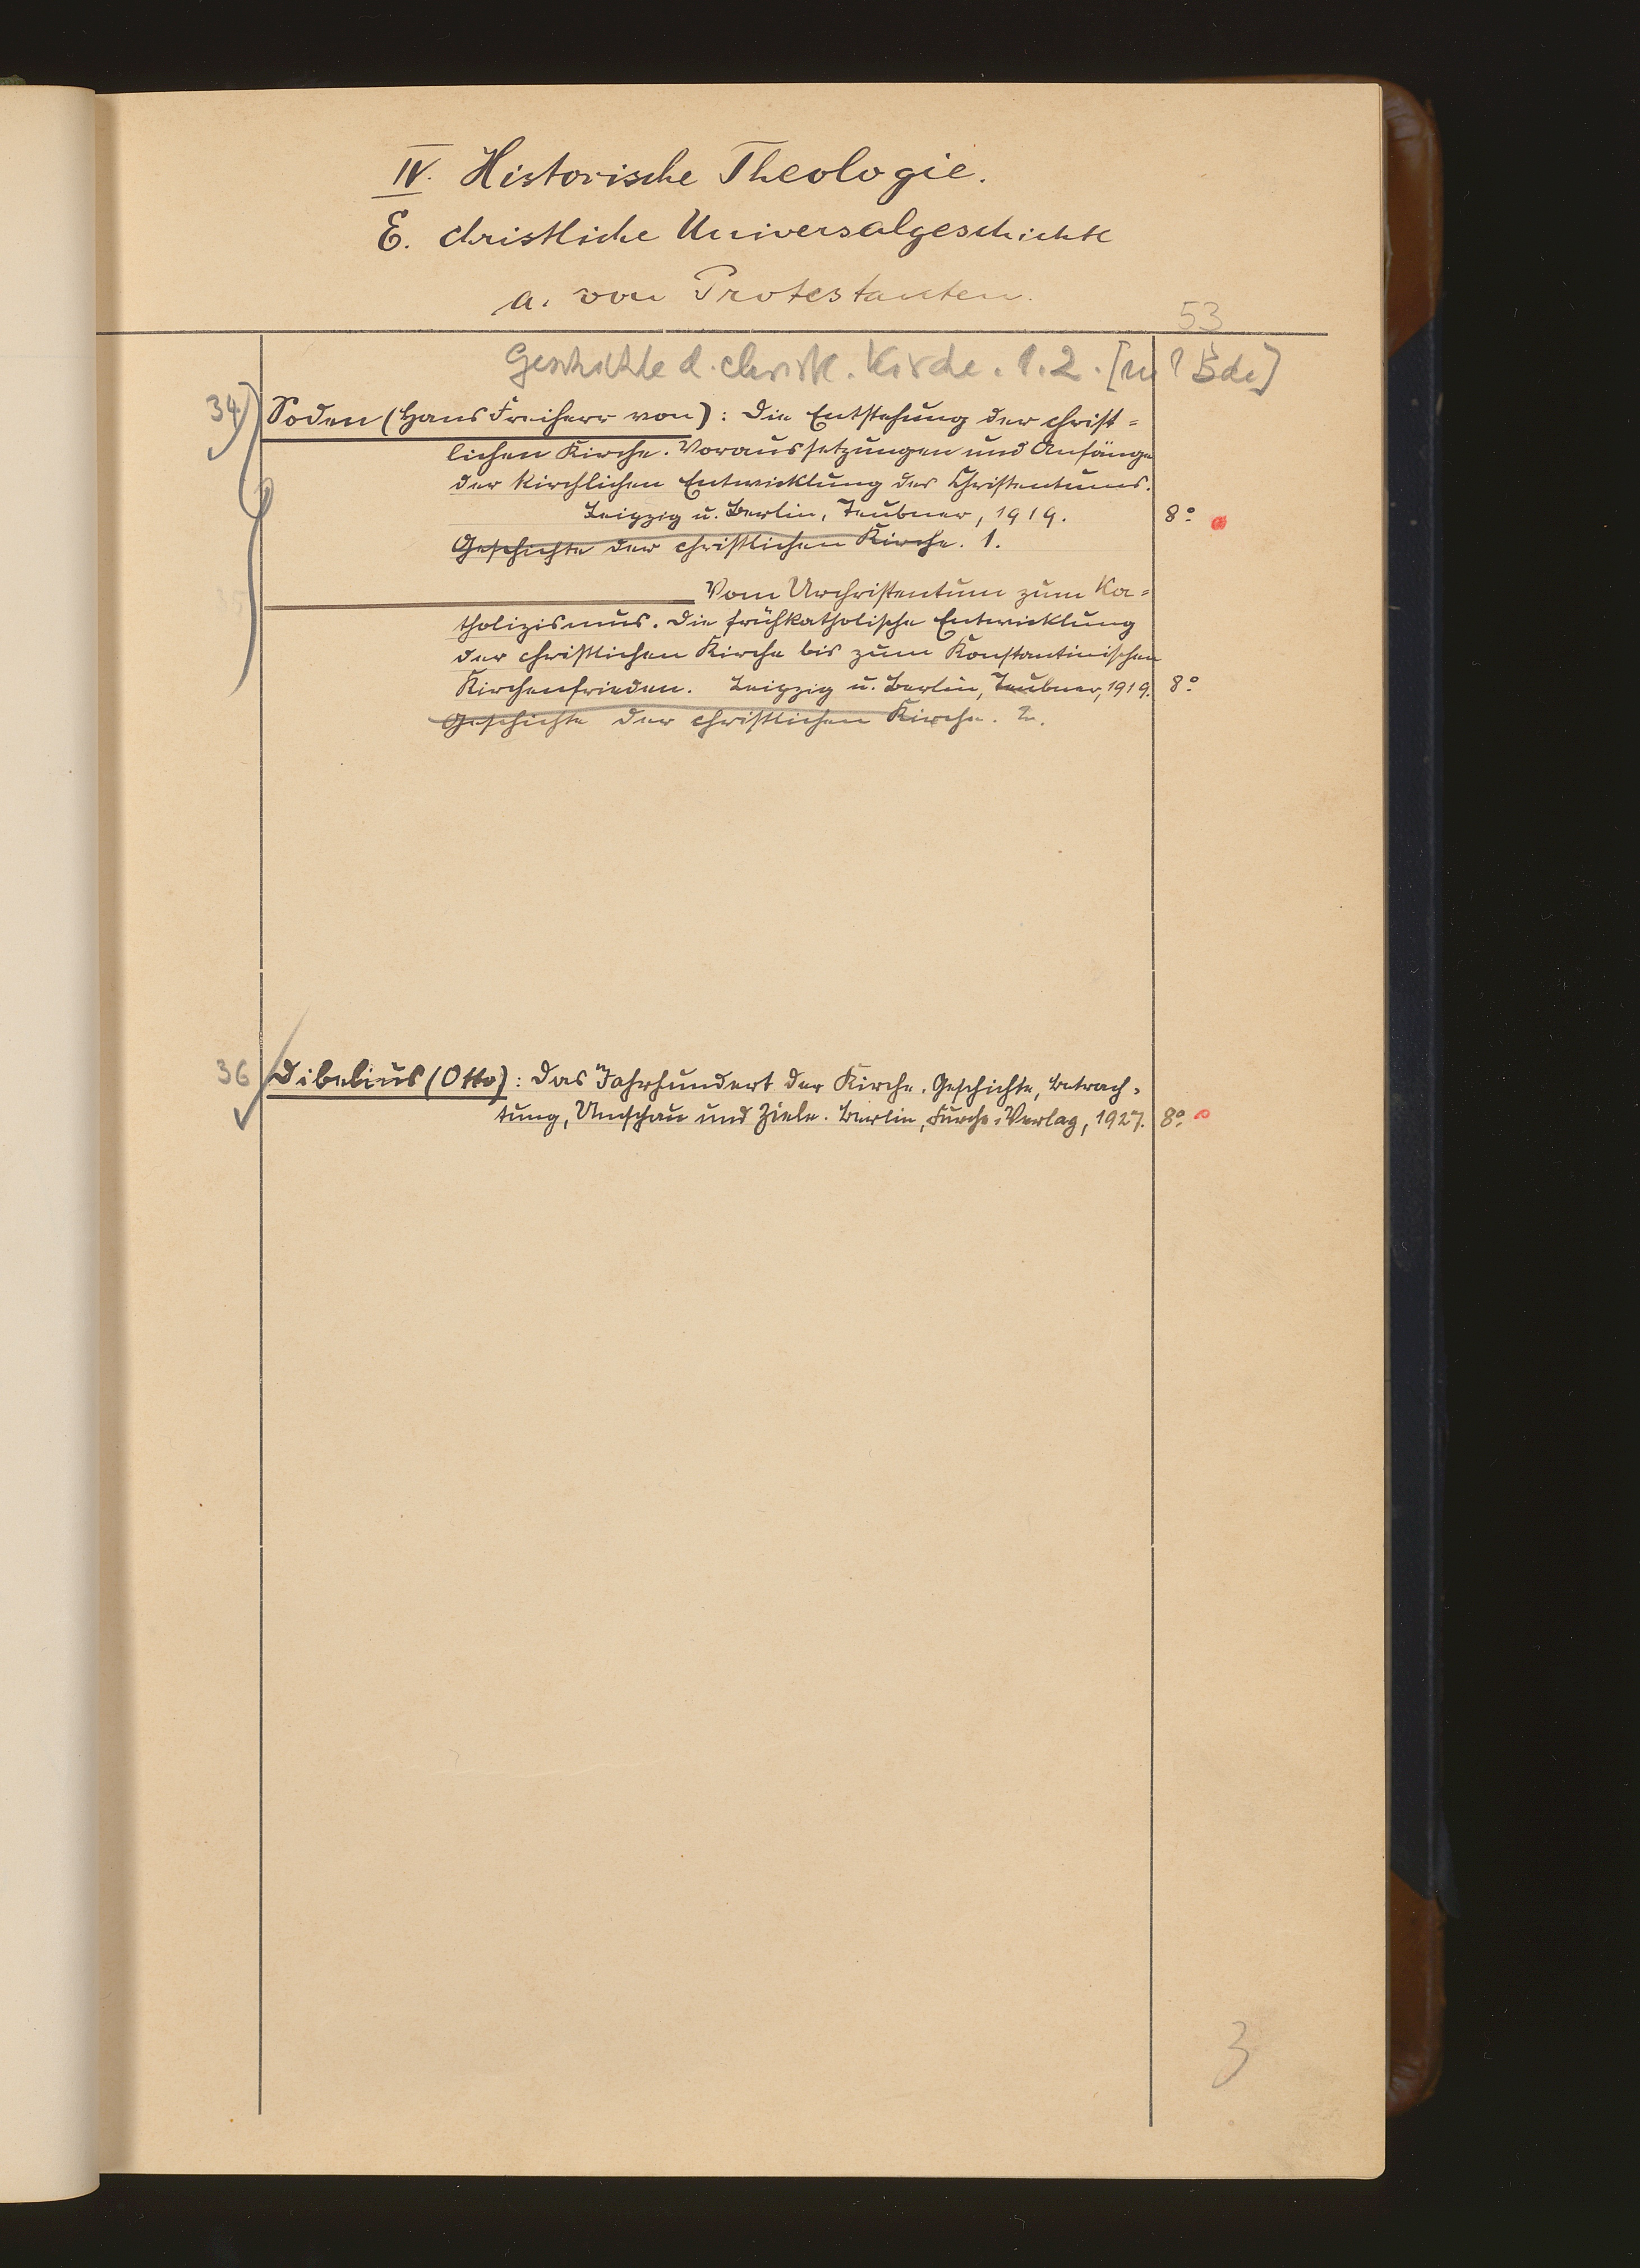 IV. Historische Theologie.
E. christliche Universalgeschichte
a. von Protestanten.
53
Geschichte d. christl. Kirche. 1.2. [in 1 Bde]
34) Soden (Hans Freiherr von): Die Entstehung der christ=
lichen Kirche. Voraussetzungen und Anfänge
der kirchlichen Entwicklung des Christentums.
Leipzig u. Berlin, Teubner, 1919. 8°
Geschichte der christlichen Kirche. 1.
Vom Urchristentum zum Ka=
tholizismus. Die frühkatholische Entwicklung
der christlichen Kirche bis zum Konstantinischen
Kirchenfrieden. Leipzig u. Berlin, Teubner, 1919. 8°
Geschichte der christlichen Kirche. 2.
36 Dibelius (Otto): Das Jahrhundert der Kirche. Geschichte, Betrach=
tung, Umschau und Ziele. Berlin, Furche-Verlag, 1927. 8°
3